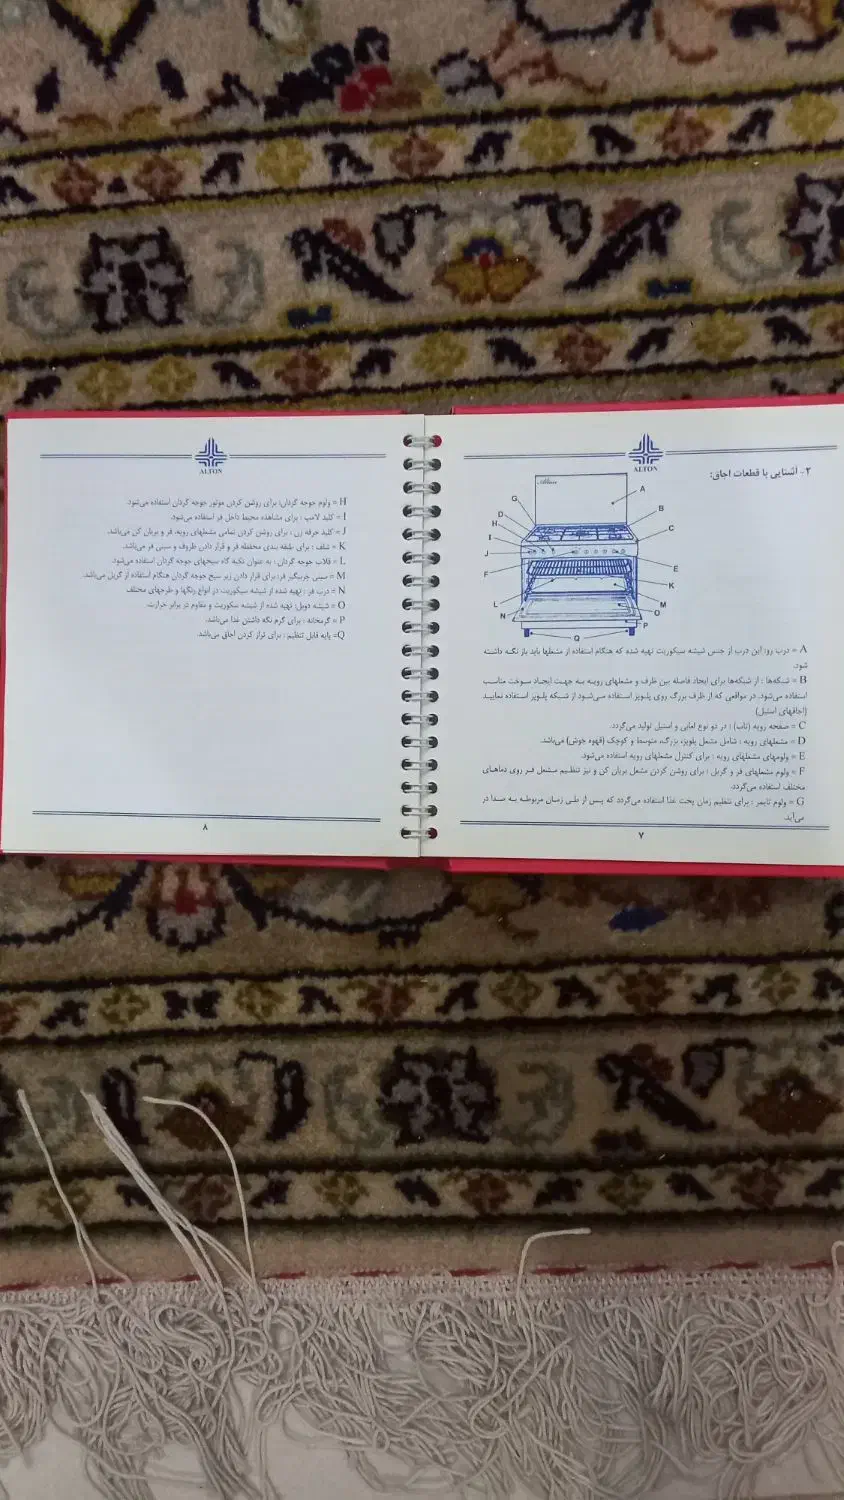 ALTON
۲- آشنایی با قطعات اجاق:
Alton
A
G
B
D
H
C
I
J
E
F
K
L
M
O
N
P
Q
A = درب رو: این درب از جنس شیشه سیکوریت تهیه شده که هنگام استفاده از مشعلها باید باز نگه داشته
شود.
B = شبکه‌ها : از شبکه‌ها برای ایجاد فاصله بین ظرف و مشعلهای رویه به جهت ایجاد سوخت مناسب
استفاده می‌شود. در مواقعی که از ظرف بزرگ روی پلوپز استفاده می‌شود از شبکه پلوپز استفاده نمایید
(اجاقهای استیل)
C = صفحه رویه (تاپ) : در دو نوع لعابی و استیل تولید می‌گردد.
D = مشعلهای رویه : شامل مشعل پلوپز، بزرگ، متوسط و کوچک (قهوه جوش) می‌باشد.
E = ولومهای مشعلهای رویه : برای کنترل مشعلهای رویه استفاده می‌شود.
F = ولوم مشعلهای فر و گریل : برای روشن کردن مشعل بریان کن و نیز تنظیم مشعل فر روی دماهای
مختلف استفاده می‌گردد.
G = ولوم تایمر : برای تنظیم زمان پخت غذا استفاده می‌گردد که پس از طی زمان مربوطه به صدا در
می‌آید.
۷
ALTON
H = ولوم جوجه گردان: برای روشن کردن موتور جوجه گردان استفاده می‌شود.
I = کلید لامپ : برای مشاهده محیط داخل فر استفاده می‌شود.
J = کلید جرقه زن : برای روشن کردن تمامی مشعلهای رویه، فر و بریان کن می‌باشد.
K = شلف : برای طبقه بندی محفظه فر و قرار دادن ظروف و سینی فر می‌باشد.
L = قلاب جوجه گردان : به عنوان تکیه گاه سیخهای جوجه گردان استفاده می‌شود.
M = سینی چربیگیر فر: برای قرار دادن زیر سیخ جوجه گردان هنگام استفاده از گریل می‌باشد.
N = درب فر : تهیه شده از شیشه سیکوریت، در انواع رنگها و طرحهای مختلف
O = شیشه دوبل: تهیه شده از شیشه سکوریت و مقاوم در برابر حرارت.
P = گرمخانه : برای گرم نگه داشتن غذا می‌باشد.
Q= پایه قابل تنظیم : برای تراز کردن اجاق می‌باشد.
۸